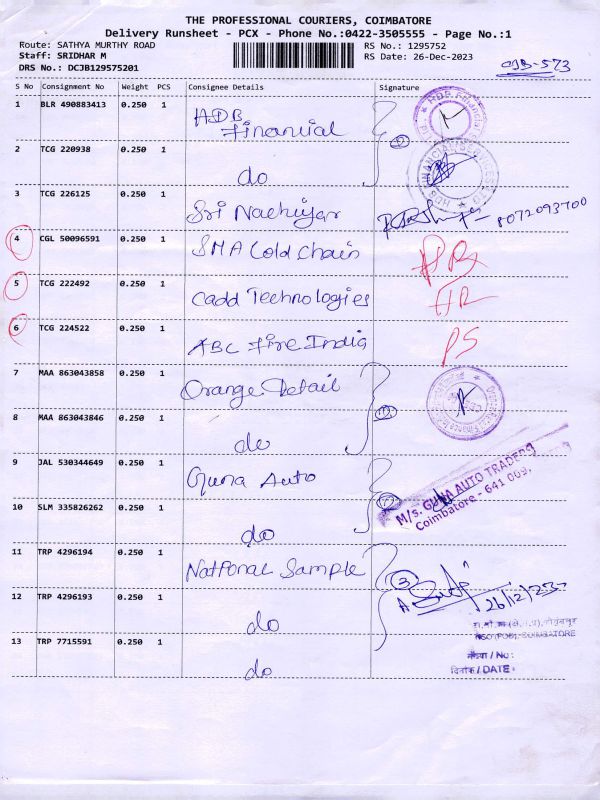 THE PROFESSIONAL COURIERS, COIMBATORE
Delivery Runsheet - PCX - Phone No.:0422-3505555 - Page No.:1
Route: SATHYA MURTHY ROAD RS No.: 1295752
Staff: SRIDHAR M RS Date: 26-Dec-2023
DRS No.: DCJB129575201
S No Consignment No Weight PCS Consignee Details Signature
1 BLR 490883413 0.250 1 HDB Financial
2 TCG 220938 0.250 1 do
3 TCG 226125 0.250 1 Sri Nachiyar 8072093700
4 CGL 50096591 0.250 1 SMA Cold Chain
5 TCG 222492 0.250 1 Cadd Technologies
6 TCG 224522 0.250 1 ABC Fire India PS
7 MAA 863043858 0.250 1 Orange Detail
8 MAA 863043846 0.250 1 do
9 JAL 530344649 0.250 1 Guna Auto
M/s. GUNA AUTO TRADERS
Coimbatore - 641 009.
10 SLM 335826262 0.250 1 do
11 TRP 4296194 0.250 1 National Sample 3
26/12/23
12 TRP 4296193 0.250 1 do
NSO (FOD), COIMBATORE
13 TRP 7715591 0.250 1 do
संख्या / No:
दिनांक / DATE: